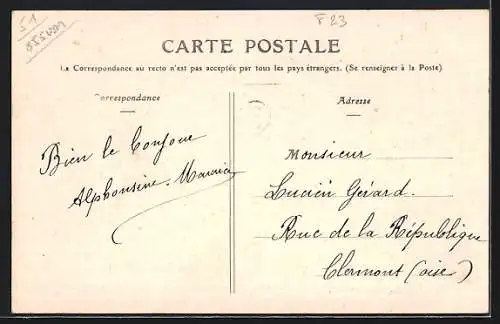 51
F 23
CARTE POSTALE
La Correspondance au recto n'est pas acceptée par tous les pays étrangers. (Se renseigner à la Poste)
Correspondance
Adresse
Bien le bonjour
Alphonsine. Maurice
Monsieur
Lucien Gérard.
Rue de la République
Clermont (oise)